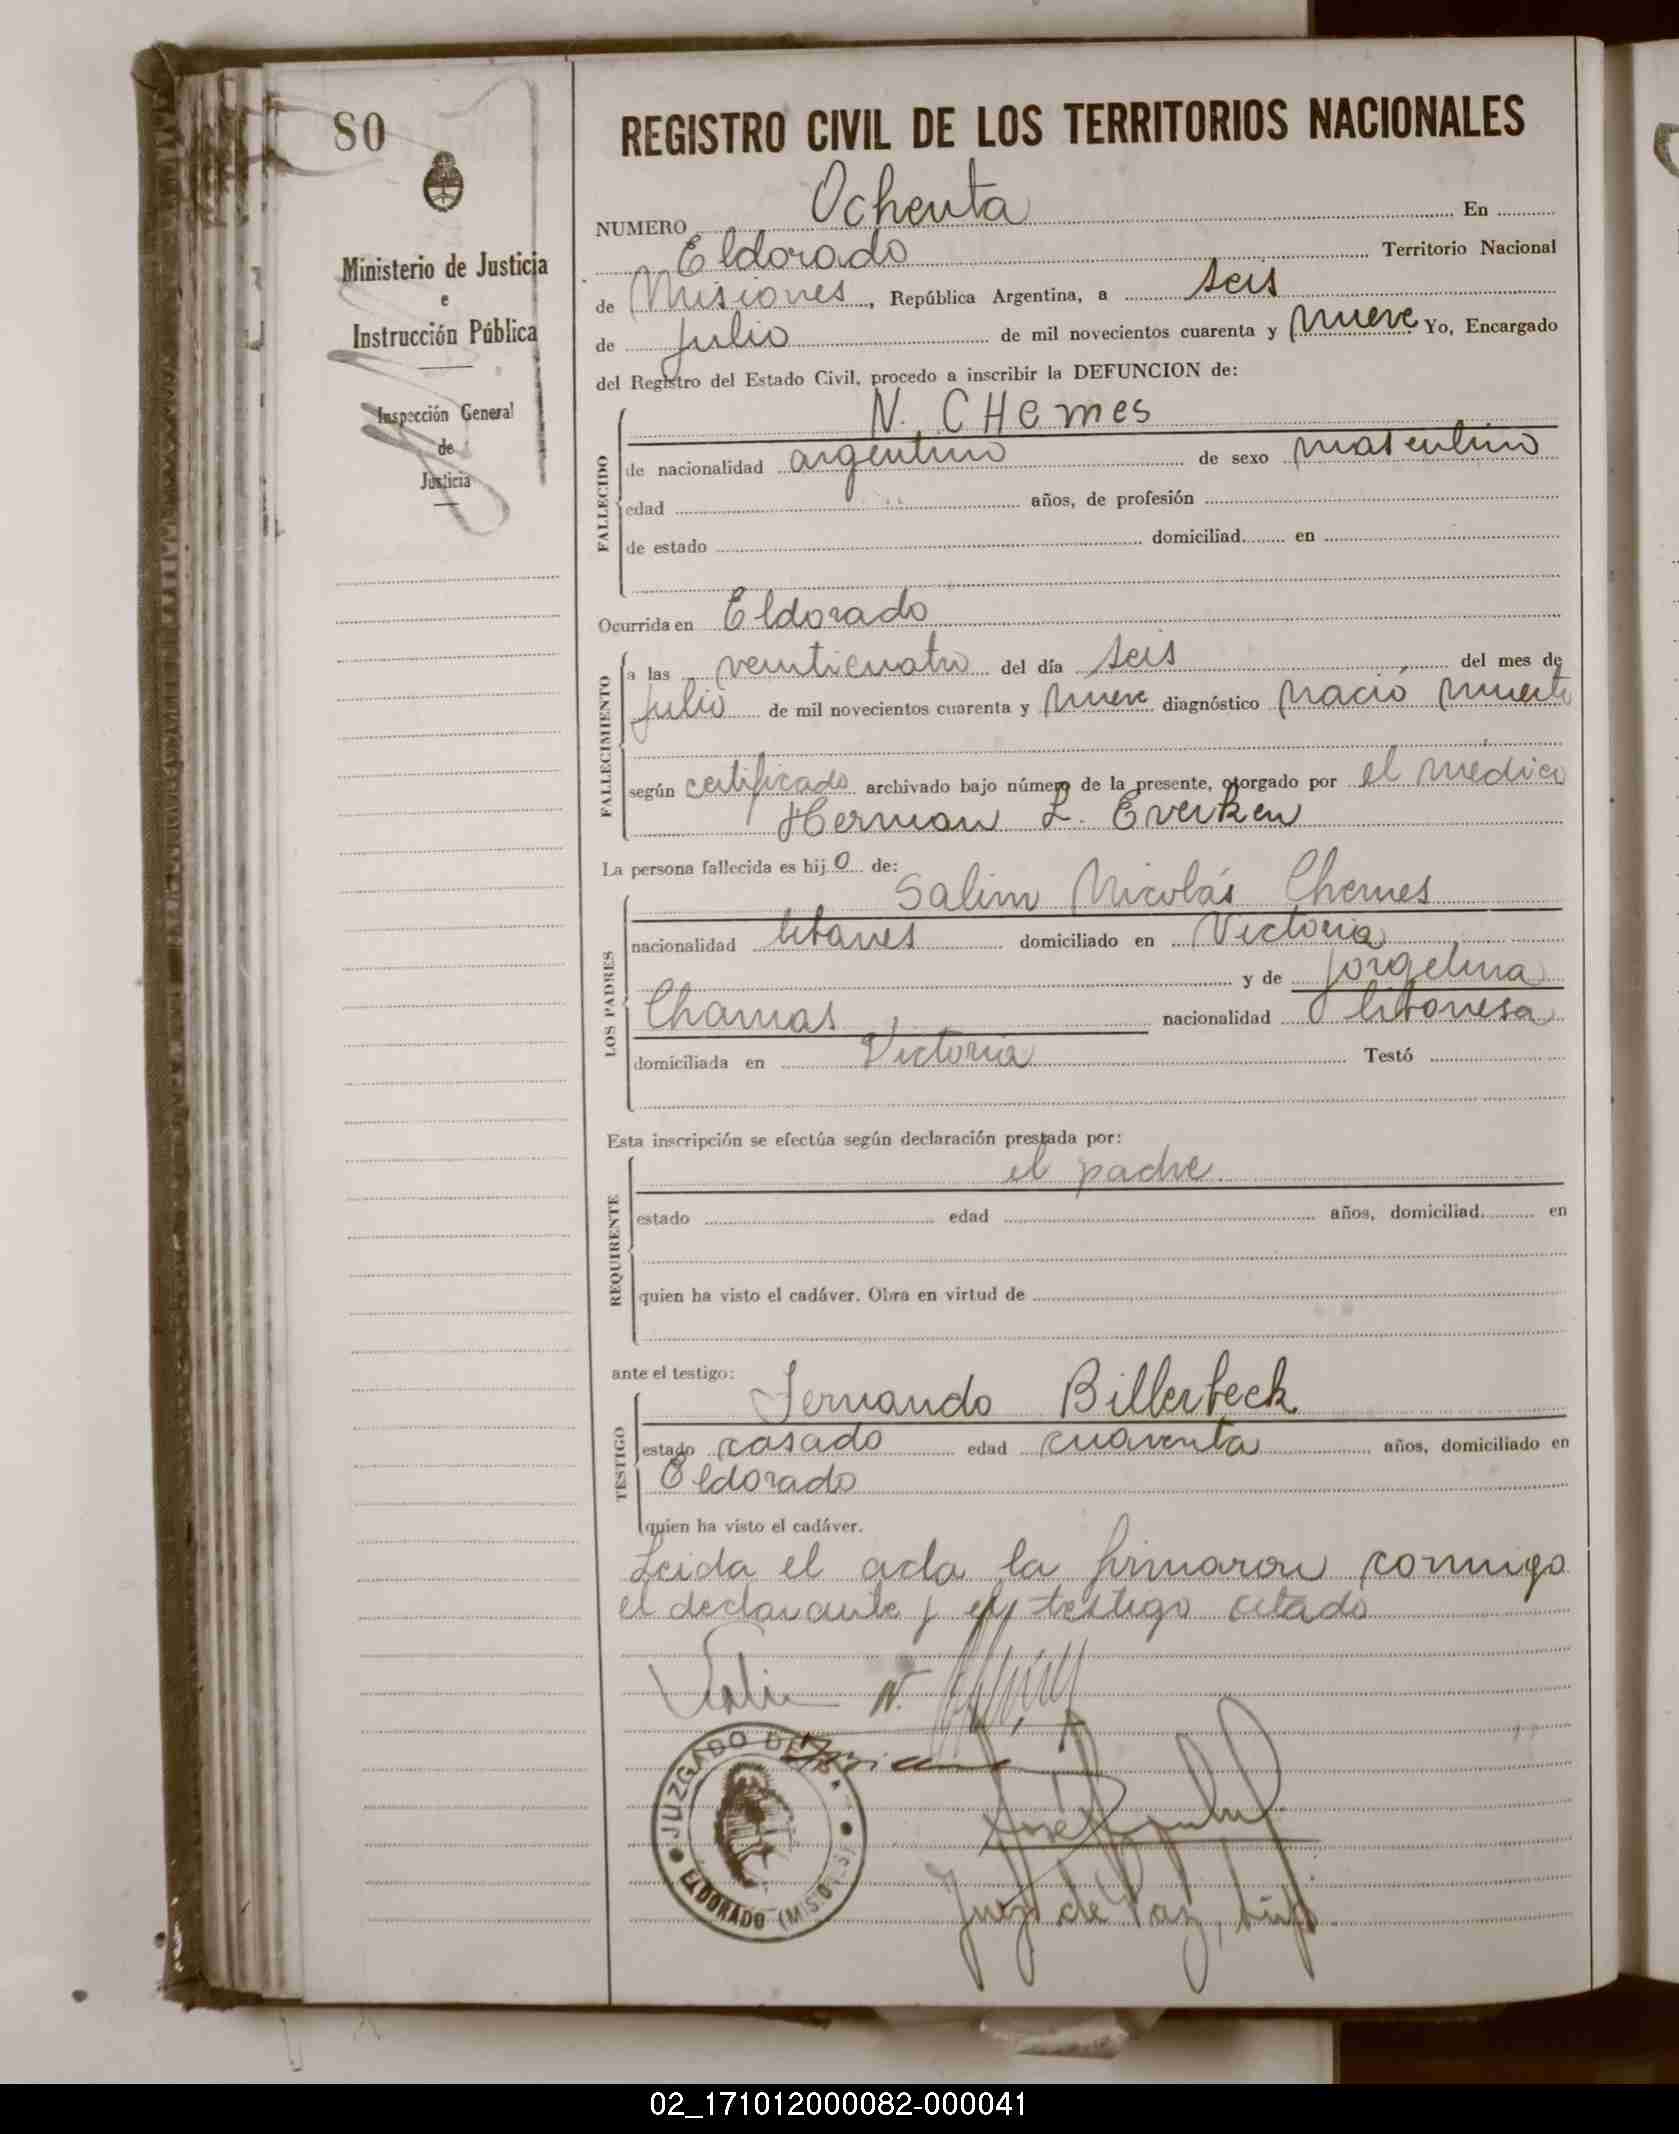 80
Ministerio de Justicia
e
Instrucción Pública
Inspección General
de
Justicia
REGISTRO CIVIL DE LOS TERRITORIOS NACIONALES
NUMERO Ochenta En
Eldorado Territorio Nacional
de Misiones, República Argentina, a seis
de Julio de mil novecientos cuarenta y nueve Yo, Encargado
del Registro del Estado Civil, procedo a inscribir la DEFUNCION de:
N. CHemes
FALLECIDO
de nacionalidad argentino de sexo masculino
edad años, de profesión
de estado domiciliad en
Ocurrida en Eldorado
FALLECIMIENTO
a las veinticuatro del día seis del mes de
Julio de mil novecientos cuarenta y nueve diagnóstico nació muerto
según certificado archivado bajo número de la presente, otorgado por el medico
Herman L. Everken
La persona fallecida es hijo de:
LOS PADRES
Salim Nicolás Chemes
nacionalidad libanes domiciliado en Victoria
y de Jorgelina
Chamas nacionalidad libanesa
domiciliada en Victoria Testó
Esta inscripción se efectúa según declaración prestada por:
REQUIRENTE
el padre
estado edad años, domiciliad en
quien ha visto el cadáver. Obra en virtud de
ante el testigo:
TESTIGO
Fernando Billerbeck
estado casado edad cuarenta años, domiciliado en
Eldorado
quien ha visto el cadáver.
Leida el acta la firmaron conmigo
el declarante y el testigo citado
Salim N.
JUZGADO DE PAZ
ELDORADO (MISIONES)
José
Juez de Paz, Sup.
02_171012000082-000041